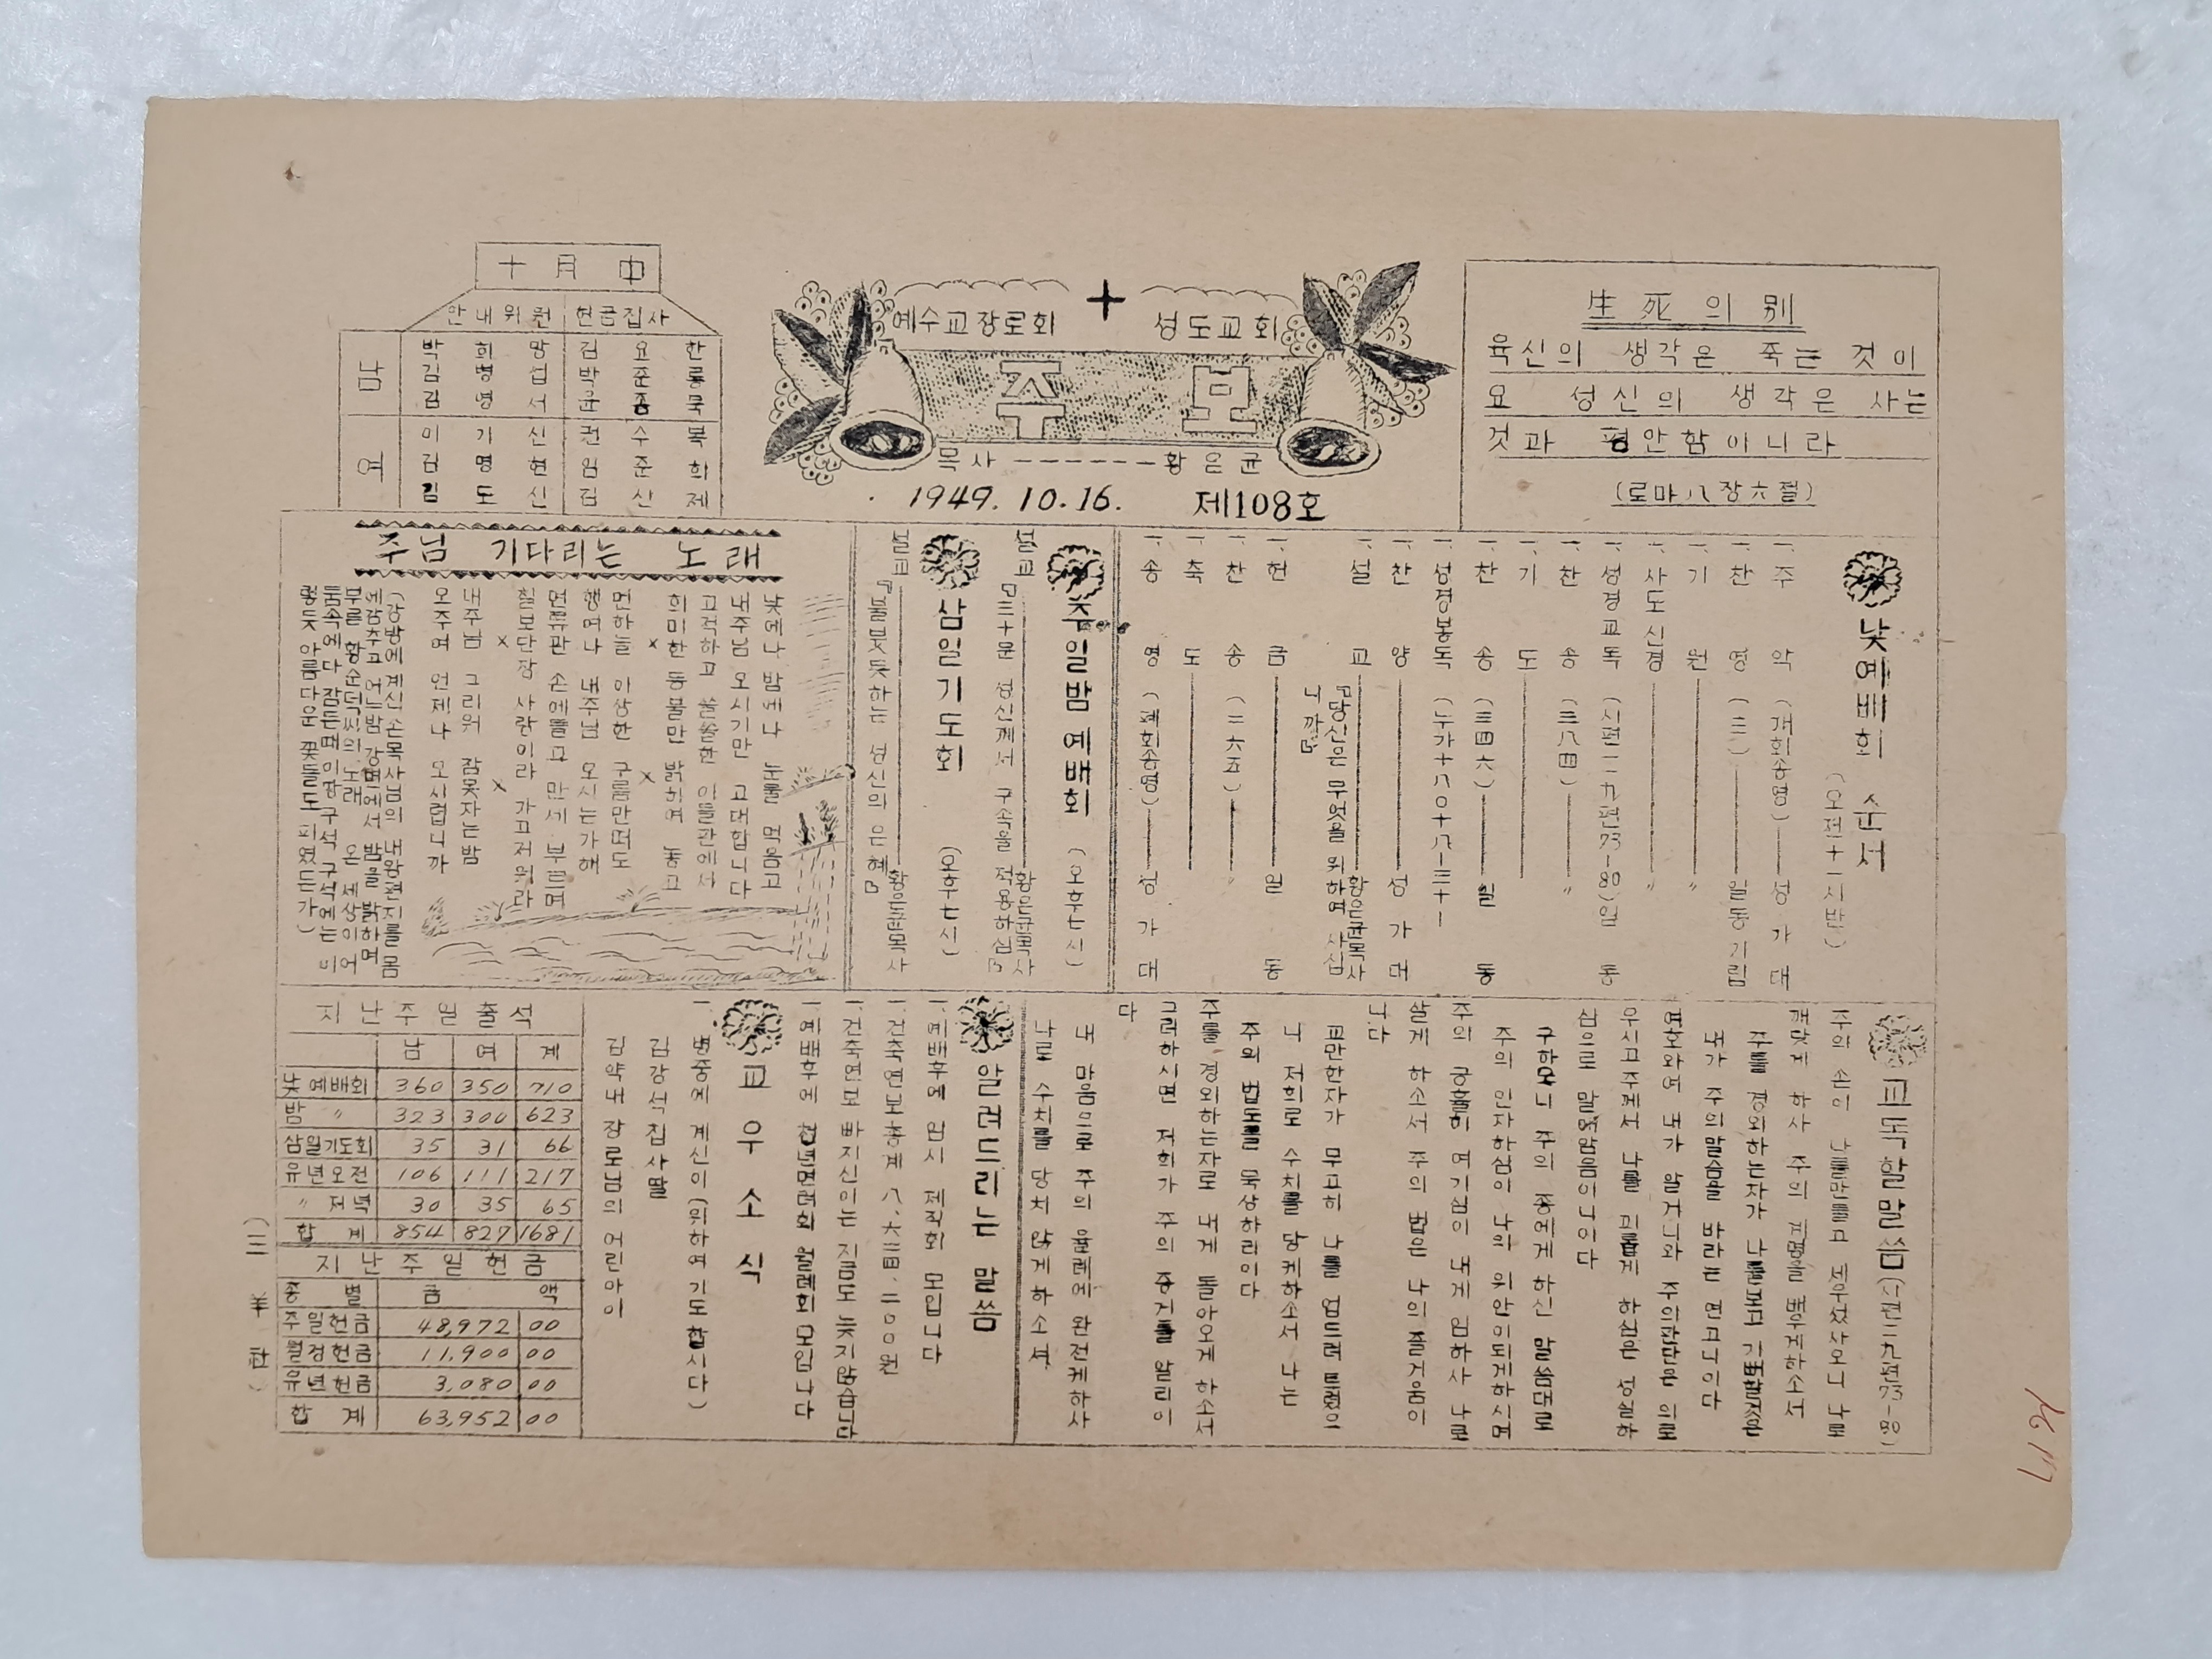 生死의別
육신의 생각은 죽는 것이
요 성신의 생각은 사는
것과 평안함이니라
(로마八장六절)
예수교장로회 성도교회
주보
목사------황은균
1949. 10. 16. 제108호
十月中
안내위원 헌금집사
남
박희망 김요한
김병섭 박준룡
김영서 윤종묵
여
이기신 권수복
김명현 임준희
김도신 김산제
낮예배회 순서
(오전十一시반)
一, 주악 (개회송영) 성가대
一, 찬영 (三一) 일동기립
一, 기원 〃
一, 사도신경 〃
一, 성경교독 (시편一一九편73-80) 일동
一, 찬송 (三八四) 〃
一, 기도
一, 찬송 (三四六) 일동
一, 성경봉독 (누가十八〇十八-三十)
一, 찬양 성가대
一, 설교 황은균목사
『당신은 무엇을 위하여 사십
니까』
一, 헌금 일동
一, 찬송 (二六五) 〃
一, 축도
一, 송영 (폐회송영) 성가대
주일밤 예배회 (오후七시)
설교 황은균목사
『三十문 성신께서 구속을 적용하심』
삼일기도회 (오후七시)
설교 황은균목사
『불붓듯하는 성신의 은혜』
주님 기다리는 노래
낮에나 밤에나 눈물 먹음고
내주님 오시기만 고대합니다
고적하고 쓸쓸한 이들판에서
희미한 등불만 밝히여 놓고
×
먼하늘 이상한 구름만떠도
행여나 내주님 오시는가해
먼류관 손에들고 만세 부르며
×
칠보단장 사랑이라 가고저워라
×
내주님 그리워 잠못자는밤
오주여 언제나 오시렵니까
(강방에계신손목사님의 내왕편지를몸
에감추고어느밤강변에서 밤을 밝하며
부를 황순덕씨의노래 온 세상이어
둠속에다 잠든때 이땅구석구석에는 이
렇듯 아름다운 꽃들도 피였든가)
교독할말씀 (시편一一九편73-80)
주의 손이 나를만들고 세우셨사오니 나로
깨닷게 하사 주의 계명을 배우게하소서
주를 경외하는자가 나를보고 기뻐할것은
내가 주의말슴을 바라는 연고니이다
여호와여 내가 알거니와 주의판단은 의로
우시고주께서 나를 괴롭게 하심은 성실하
심으로 말매암음이니이다
구하오니 주의 종에게 하신 말씀대로
주의 인자하심이 나의 위안이되게하시며
주의 긍휼히 여기심이 내게 임하사 나로
살게 하소서 주의 법은 나의 즐거움이
니다
교만한자가 무고히 나를 업드러트렸으
니 저희로 수치를 당케하소서 나는
주의 법도를 묵상하리이다
주를 경외하는자로 내게 돌아오게 하소서
그러하시면 저희가 주의 증거를 알리이
다
내 마음으로 주의 율례에 완전케하사
나로 수치를 당치 않게하소서
알려드리는 말씀
一, 예배후에 임시 제직회 모입니다
一, 건축연보총계 八、六三四、二〇〇원
一, 건축연보 빠지신이는 지금도 늦지않습니다
一, 예배후에 청년면려회 월례회 모임니다
교우소식
一, 병중에 계신이 (위하여기도합시다)
김강석집사딸
김약내 장로님의 어린아이
지난주일출석
남 여 계
낮예배회 360 350 710
밤 〃 323 300 623
삼일기도회 35 31 66
유년오전 106 111 217
〃 저녁 30 35 65
합계 854 827 1681
지난주일헌금
종별 금액
주일헌금 48,972 00
월정헌금 11,900 00
유년헌금 3,080 00
합계 63,952 00
(三羊社)